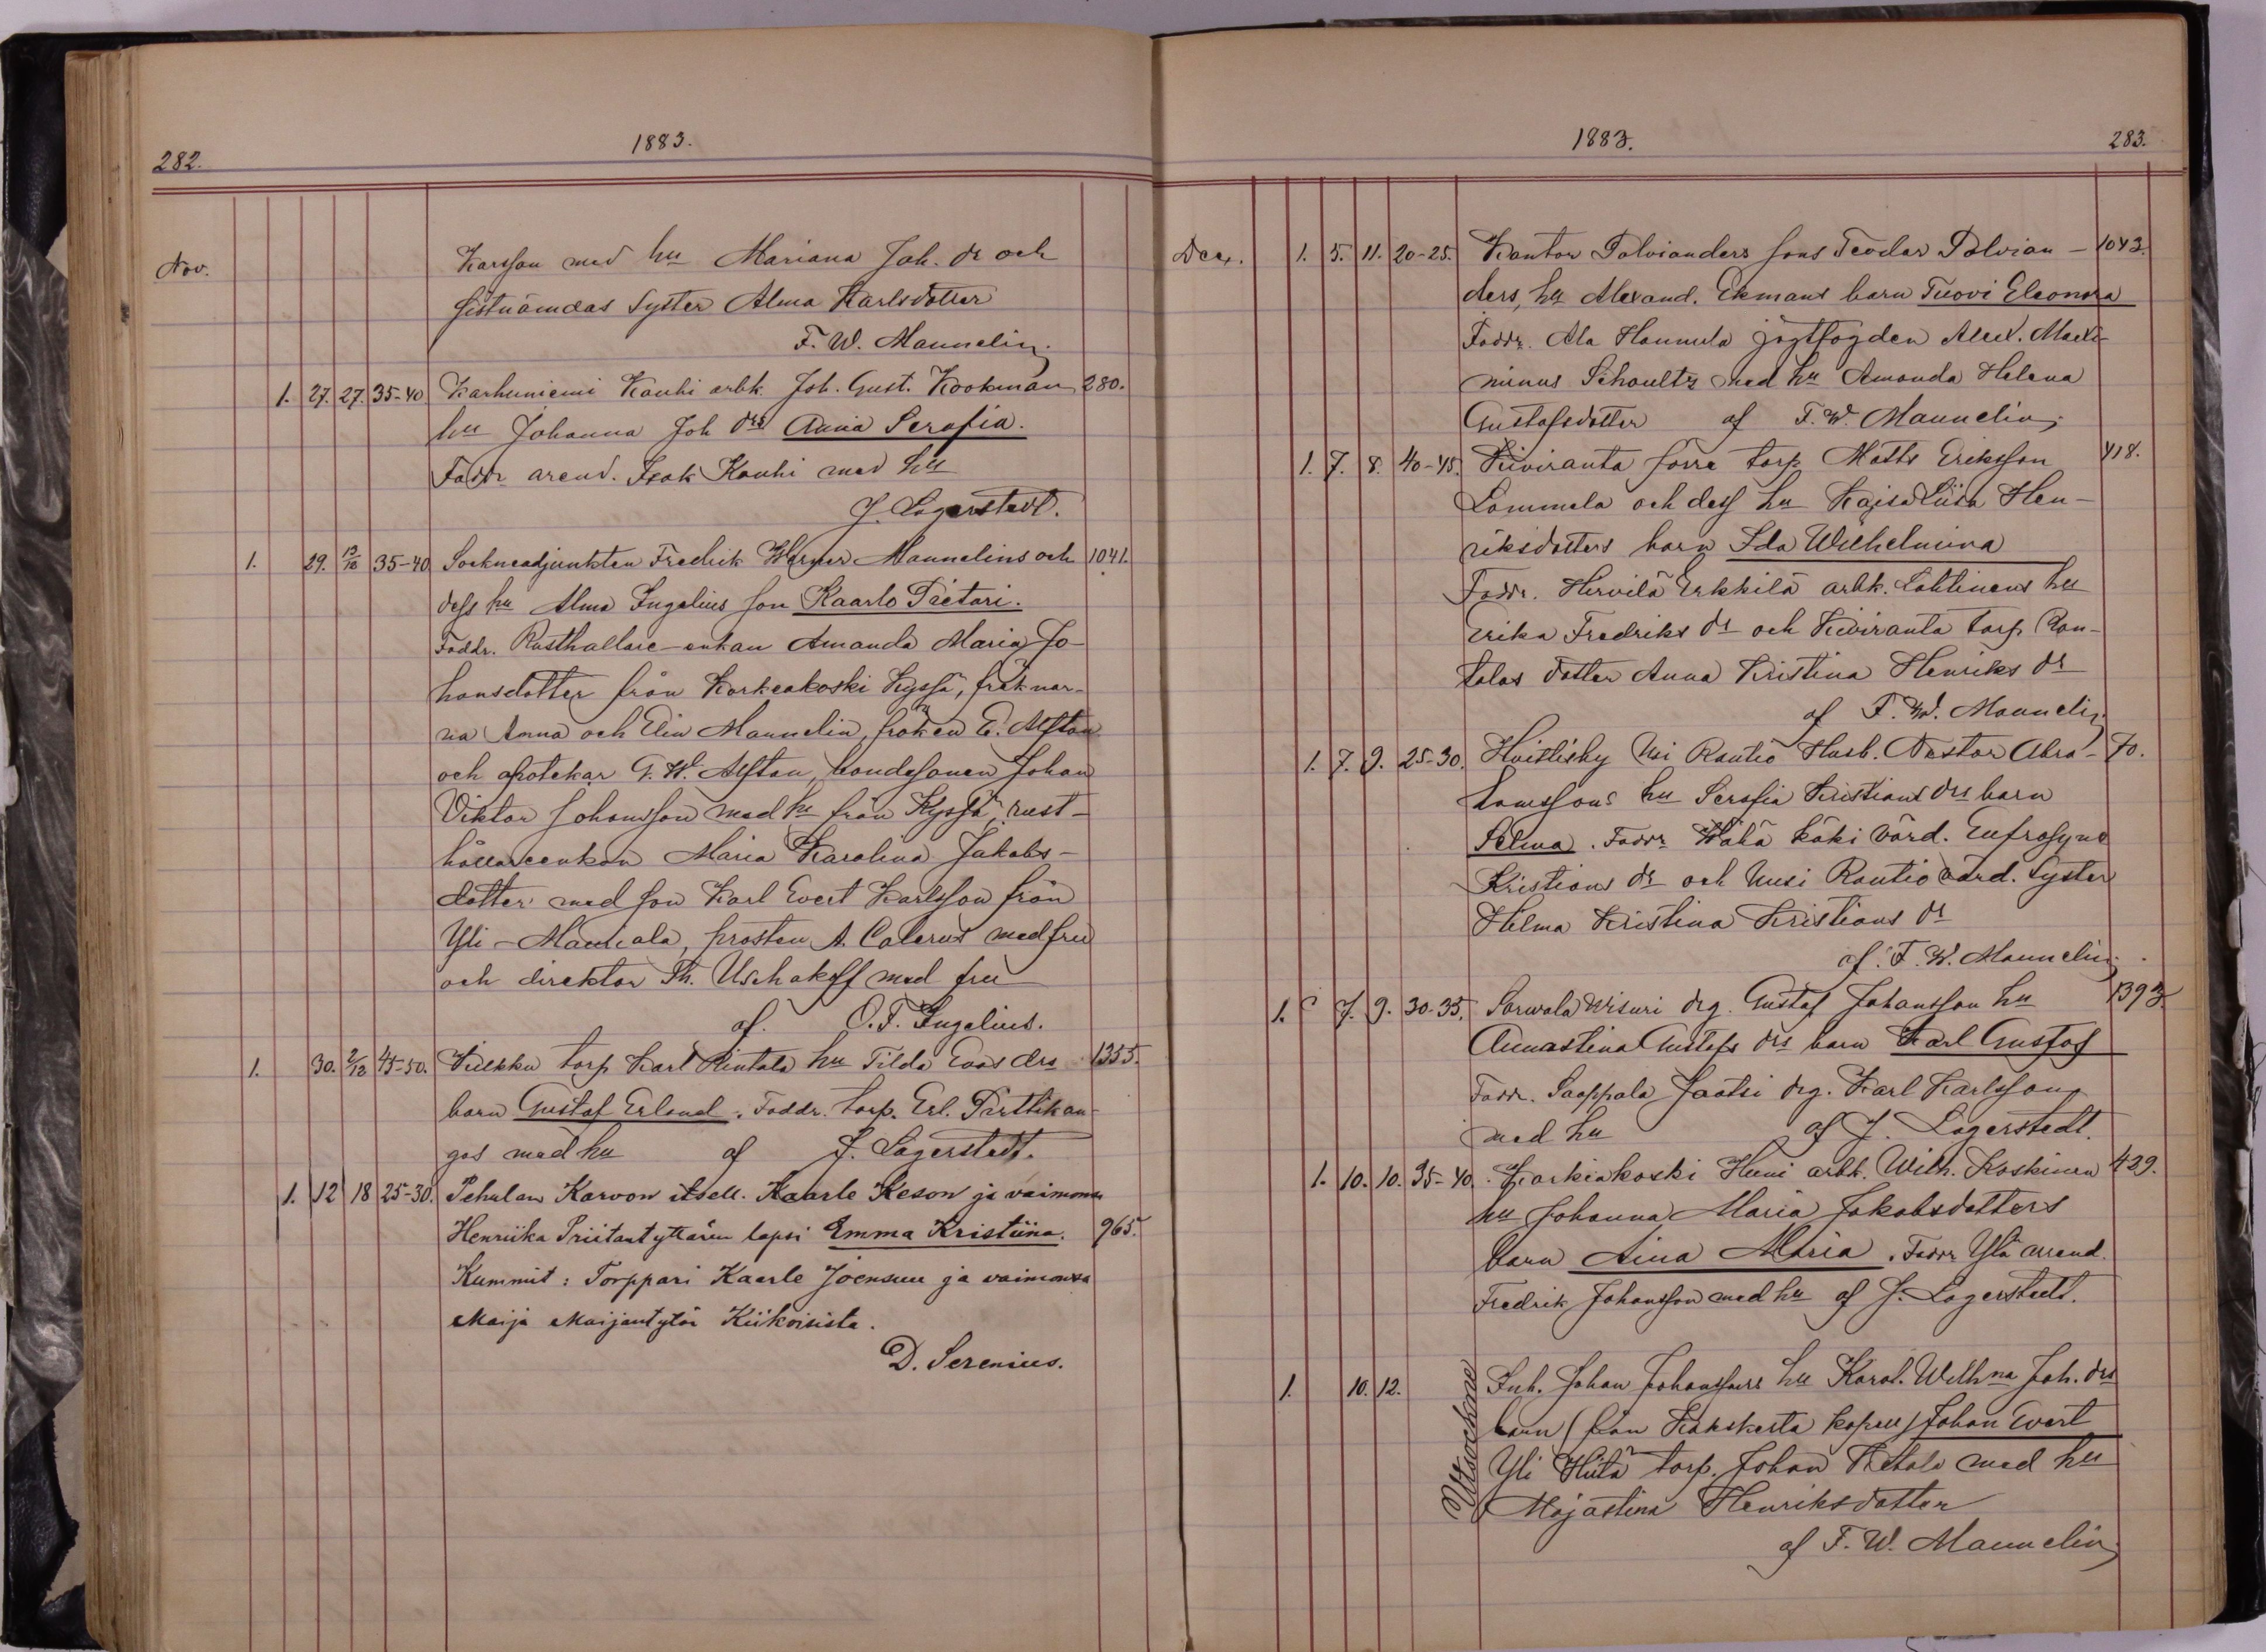 282.
1883.
Nov.
Karsson med hu Mariana Joh. dr och
sistnämdas Syster Alma Karlsdotter
F. W. Mannelin.
1. 27. 27. 35-40 Karhuniemi Kauhi arbk. Joh. Gust. Kookman 280.
hu Johanna Joh drs Anna Serafia.
Faddr arend. Isak Kauhi med hu
J. Lagerstedt.
1. 29. 13/10 35-40 Sockneadjunkten Fredrik Werner Mannelins och 1041.
dess hu Alma Ingelius son Kaarlo Pietari.
Faddr. Rusthållare-enkan Amanda Maria Jo-
hansdotter från Korkeakoski Kyssä, fröknar-
na Anna och Elin Mannelin, fröken E. Alftan
och apotekar G. W. Alftan, bondesonen Johan
Viktor Johansson med hu från Kyssä, rust-
hållareenkan Maria Karolina Jakobs-
dotter med son Karl Evert Karlsson från
Yli-, prosten A. Calerus med fru
och direktor Th. Uschakoff med fru
af. O. F. Ingelius.
1. 30. 2/12 45-50. Kilkku torp Karl Hintala hu Tilda Evas drs 1355.
barn Gustaf Erland. Faddr. torp. Erl. Pärttikan-
gas med hu af J. Lagerstedt.
1. 12 18 25-30. Pehulan Karvon itsell. Kaarle Keson ja vaimonsa
Henriika Priitantyttären lapsi Emma Kristiina. 965.
Kummit: Torppari Kaarle Joensuu ja vaimonsa
Maija Maijantytär Kiikoisista.
D. Serenius.
1883.
283.
Dec.
1. 5. 11. 20-25. Kantor Polvianders sons Teodor Polvian- 1043.
ders, hu Alexand. Ekmans barn Tuovi Eleonora
Faddr. Ala Hannula jägtfogden Alex. Maxi-
minus Schoultz med hu Amanda Helena
Gustafsdotter af F. W. Mannelin.
1. 7. 8. 40-45. Kiviranta förre torp Matts Eriksson 418.
Lammela och dess hu Kajsa Liisa Hen-
riksdotters barn Ida Wilhelmina
Faddr. Hirvilä Erkkilä arbk. Lahtinens hu
Erika Fredriks dr och Kiviranta torp Ran-
talas dotter Anna Kristina Henriks dr
af F. W. Mannelin.
1. 7. 9. 25-30. Huittisby Usi Rautio Husb. Nestor Abra- 70.
hamssons hu Serafia Kristians drs barn
Selma. Faddr Wähä Käki värd. Eufrosyne
Kristians dr och Uusi Rautio värd. Syster
Hilma Kristina Kristians dr
af. F. W. Mannelin.
1. 7. 9. 30-35. Sarwala Wisuri drg. Gustaf Johansson hu 1393.
Annastina Gustafs drs barn Karl Gustaf
Faddr. Saappala Jaatsi drg. Karl Karlsson
med hu af J. Lagerstedt.
1. 10. 10. 35-40. Karkiakoski Huni arbk. Wilh. Koskinen 429.
hu Johanna Maria Jakobsdotters
barn Aina Maria. Faddr Ylä arrend.
Fredrik Johansson med hu af J. Lagerstedt.
Utsockne
1. 10. 12. Inh. Johan Johanssons hu Karol. Wilhna Joh. drs
barn (från Kakskerta kapell) Johan Evert
Yli Hiitä torp. Johan Ketala med hu
Majastina Henriksdotter
af F. W. Mannelin